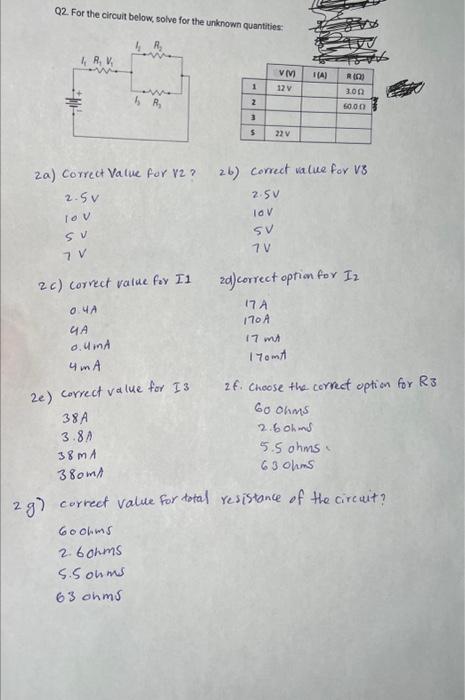 Q2. For the circuit below, solve for the unknown quantities:
I₁ R₁ V₁
I₂ R₂
I₃ R₃
V (V) I (A) R (Ω)
1 12 V 3.0 Ω
2 60.0 Ω
3
S 22 V
2a) Correct Value for V2 ?
2.5V
10 V
5 V
7 V
2b) correct value for V3
2.5V
10V
5V
7V
2c) correct value for I1
0.4A
4A
0.4mA
4mA
2d) correct option for I2
17 A
170A
17 mA
170mA
2e) correct value for I3
38A
3.8A
38 mA
380mA
2f. Choose the correct option for R3
60 ohms
2.6 ohms
5.5 ohms
63 ohms
2g) correct value for total resistance of the circuit?
60 ohms
2.6 ohms
5.5 ohms
63 ohms